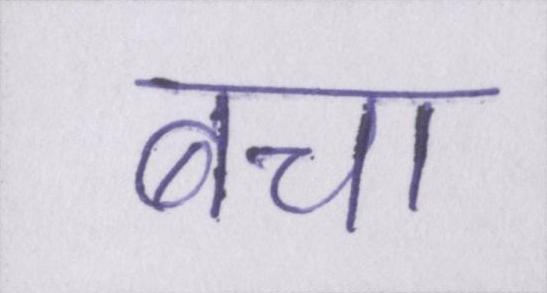 बचा